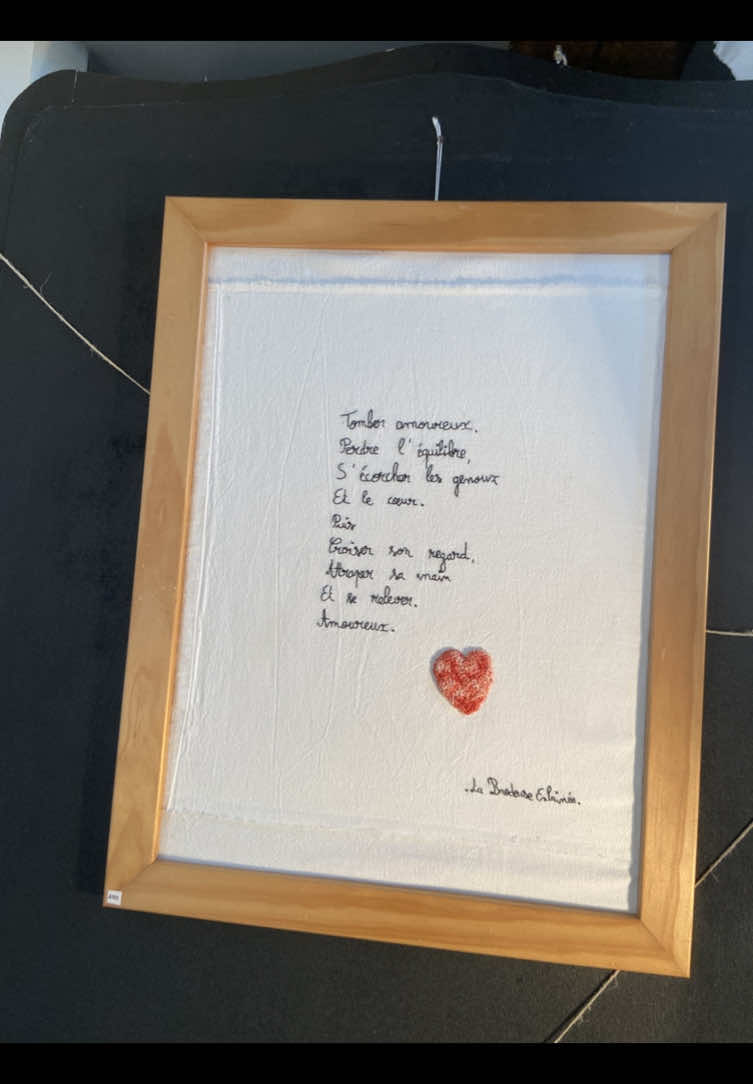 Tomber amoureux.
Perdre l'équilibre,
S'écorcher les genoux
Et le cœur.
Puis
Croiser son regard,
Attraper sa main
Et se relever.
Amoureux.
La Brodeuse